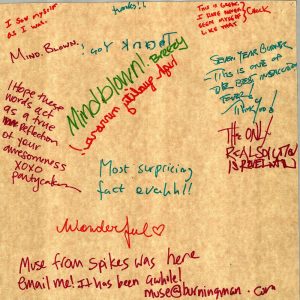 I saw myself
as I was.
thanks!!
This is great.
I have never
seen myself
like that
MIND. BLOWN.
Mindblown!
Breezy
SEVEN YEAR BURNER
THIS IS ONE OF
THE BEST
EVER!
I Hope these
words act
as a true
reflection
of your
awesomness
xoxo
partycakes
THE ONLY
REAL SOLUTION
IS REVELATION
Most surprising
fact evahh!!
Wonderful♡
Muse from Spikes was here
Email me! It has been awhile!
muse@burningman.com